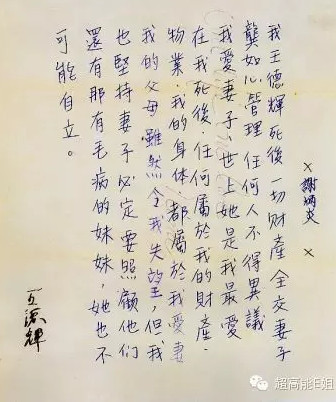 × 謝炳炎 ×
我王德輝死後一切財產全交妻子
龔如心管理任何人不得異議
我愛妻子,世上她是我最愛
在我死後,任何屬於我的財產.
物業.我的身体,都屬於我愛妻
我的父母雖然令我失望,但我
也堅持妻子必定要照顧他們
還有那有毛病的妹妹,她也不
可能自立。
王德輝
超高能E姐